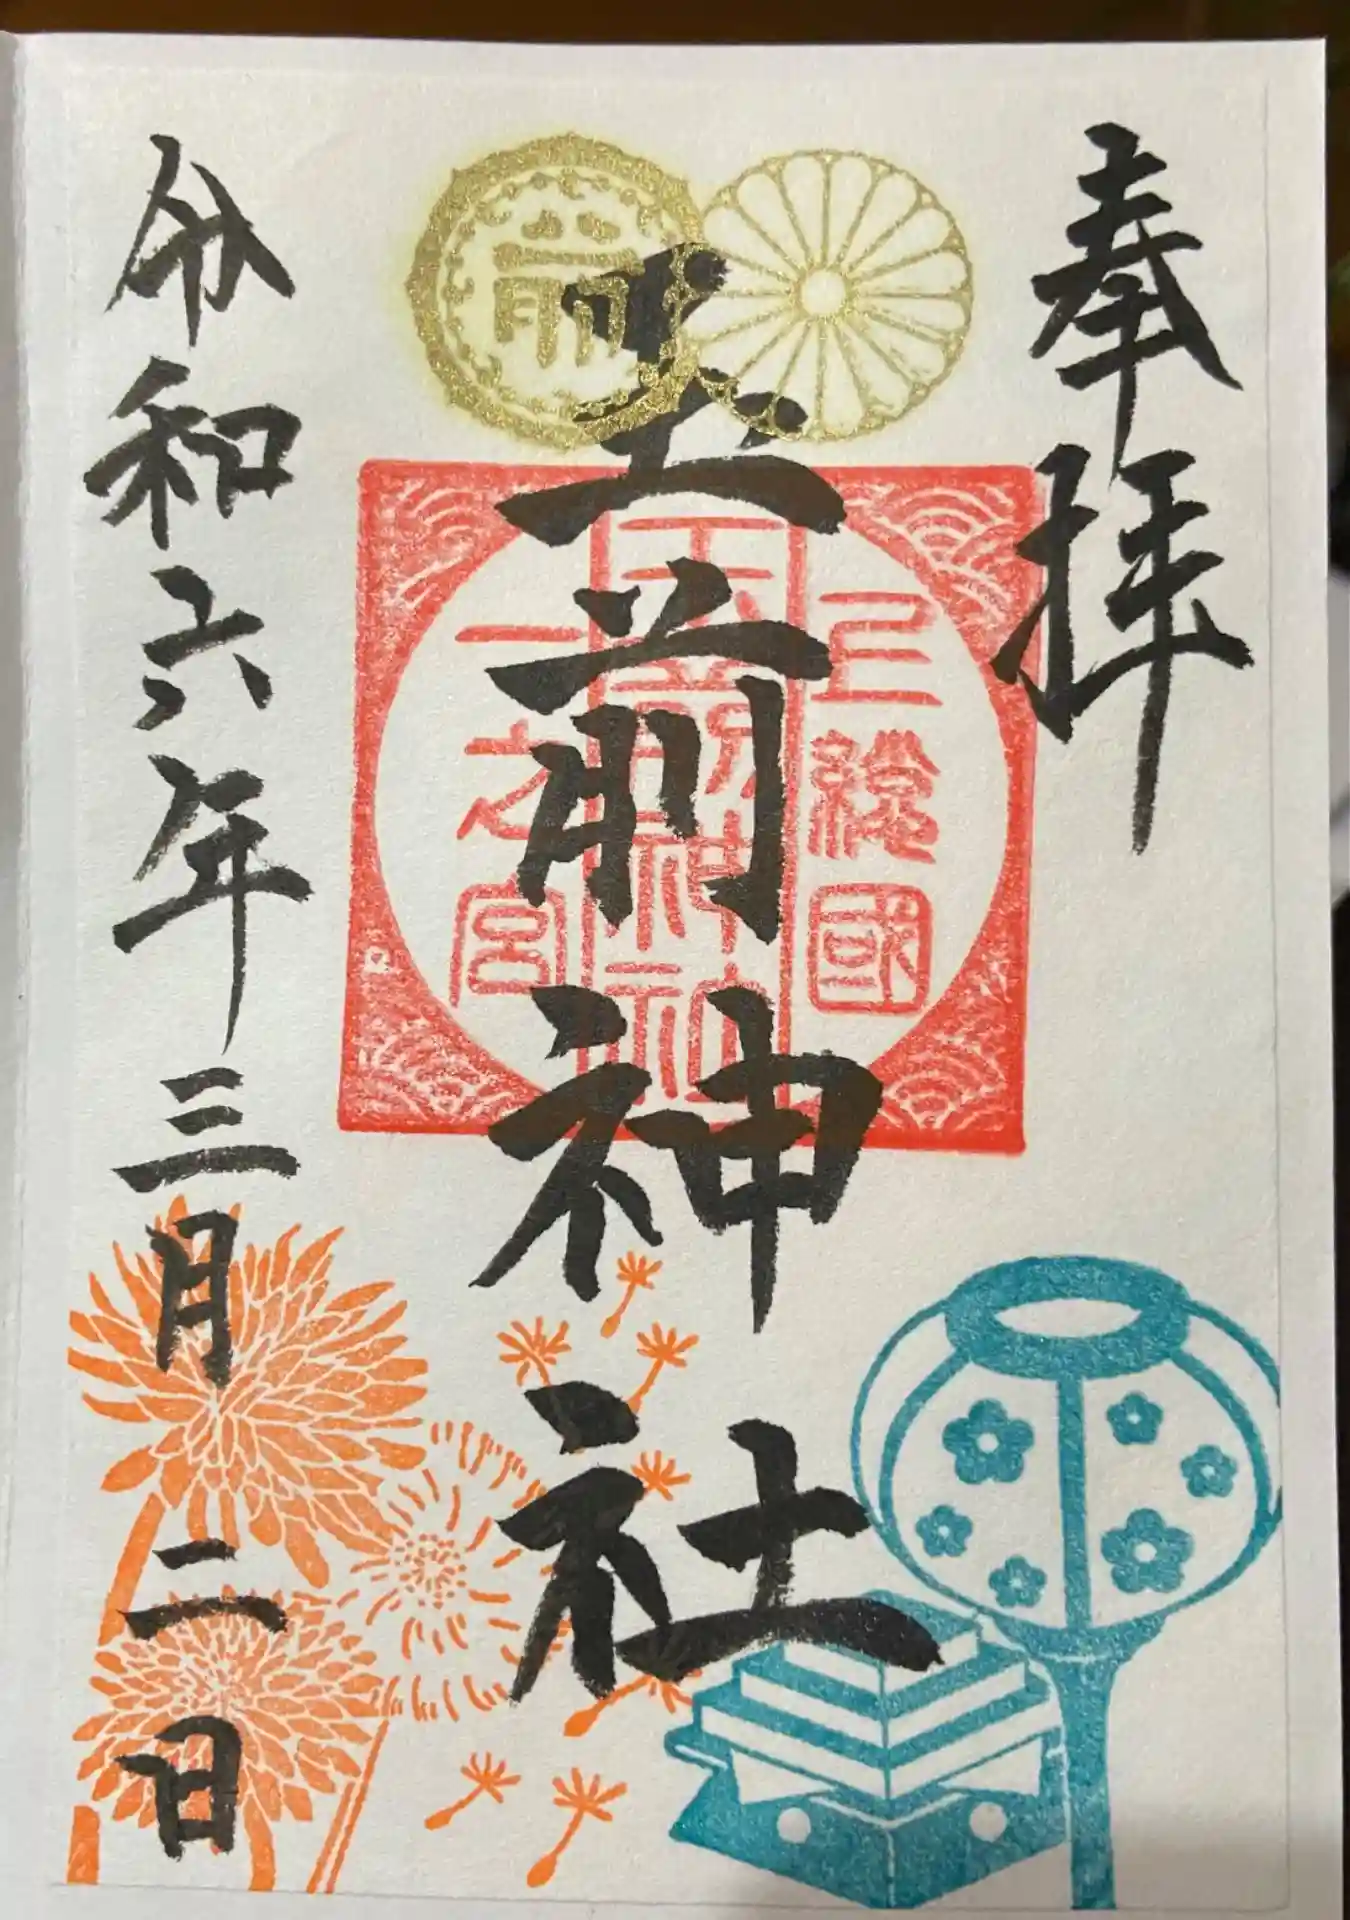 奉拝
前
玉前神社
上總國
玉前神社
一之宮
令和六年三月二日